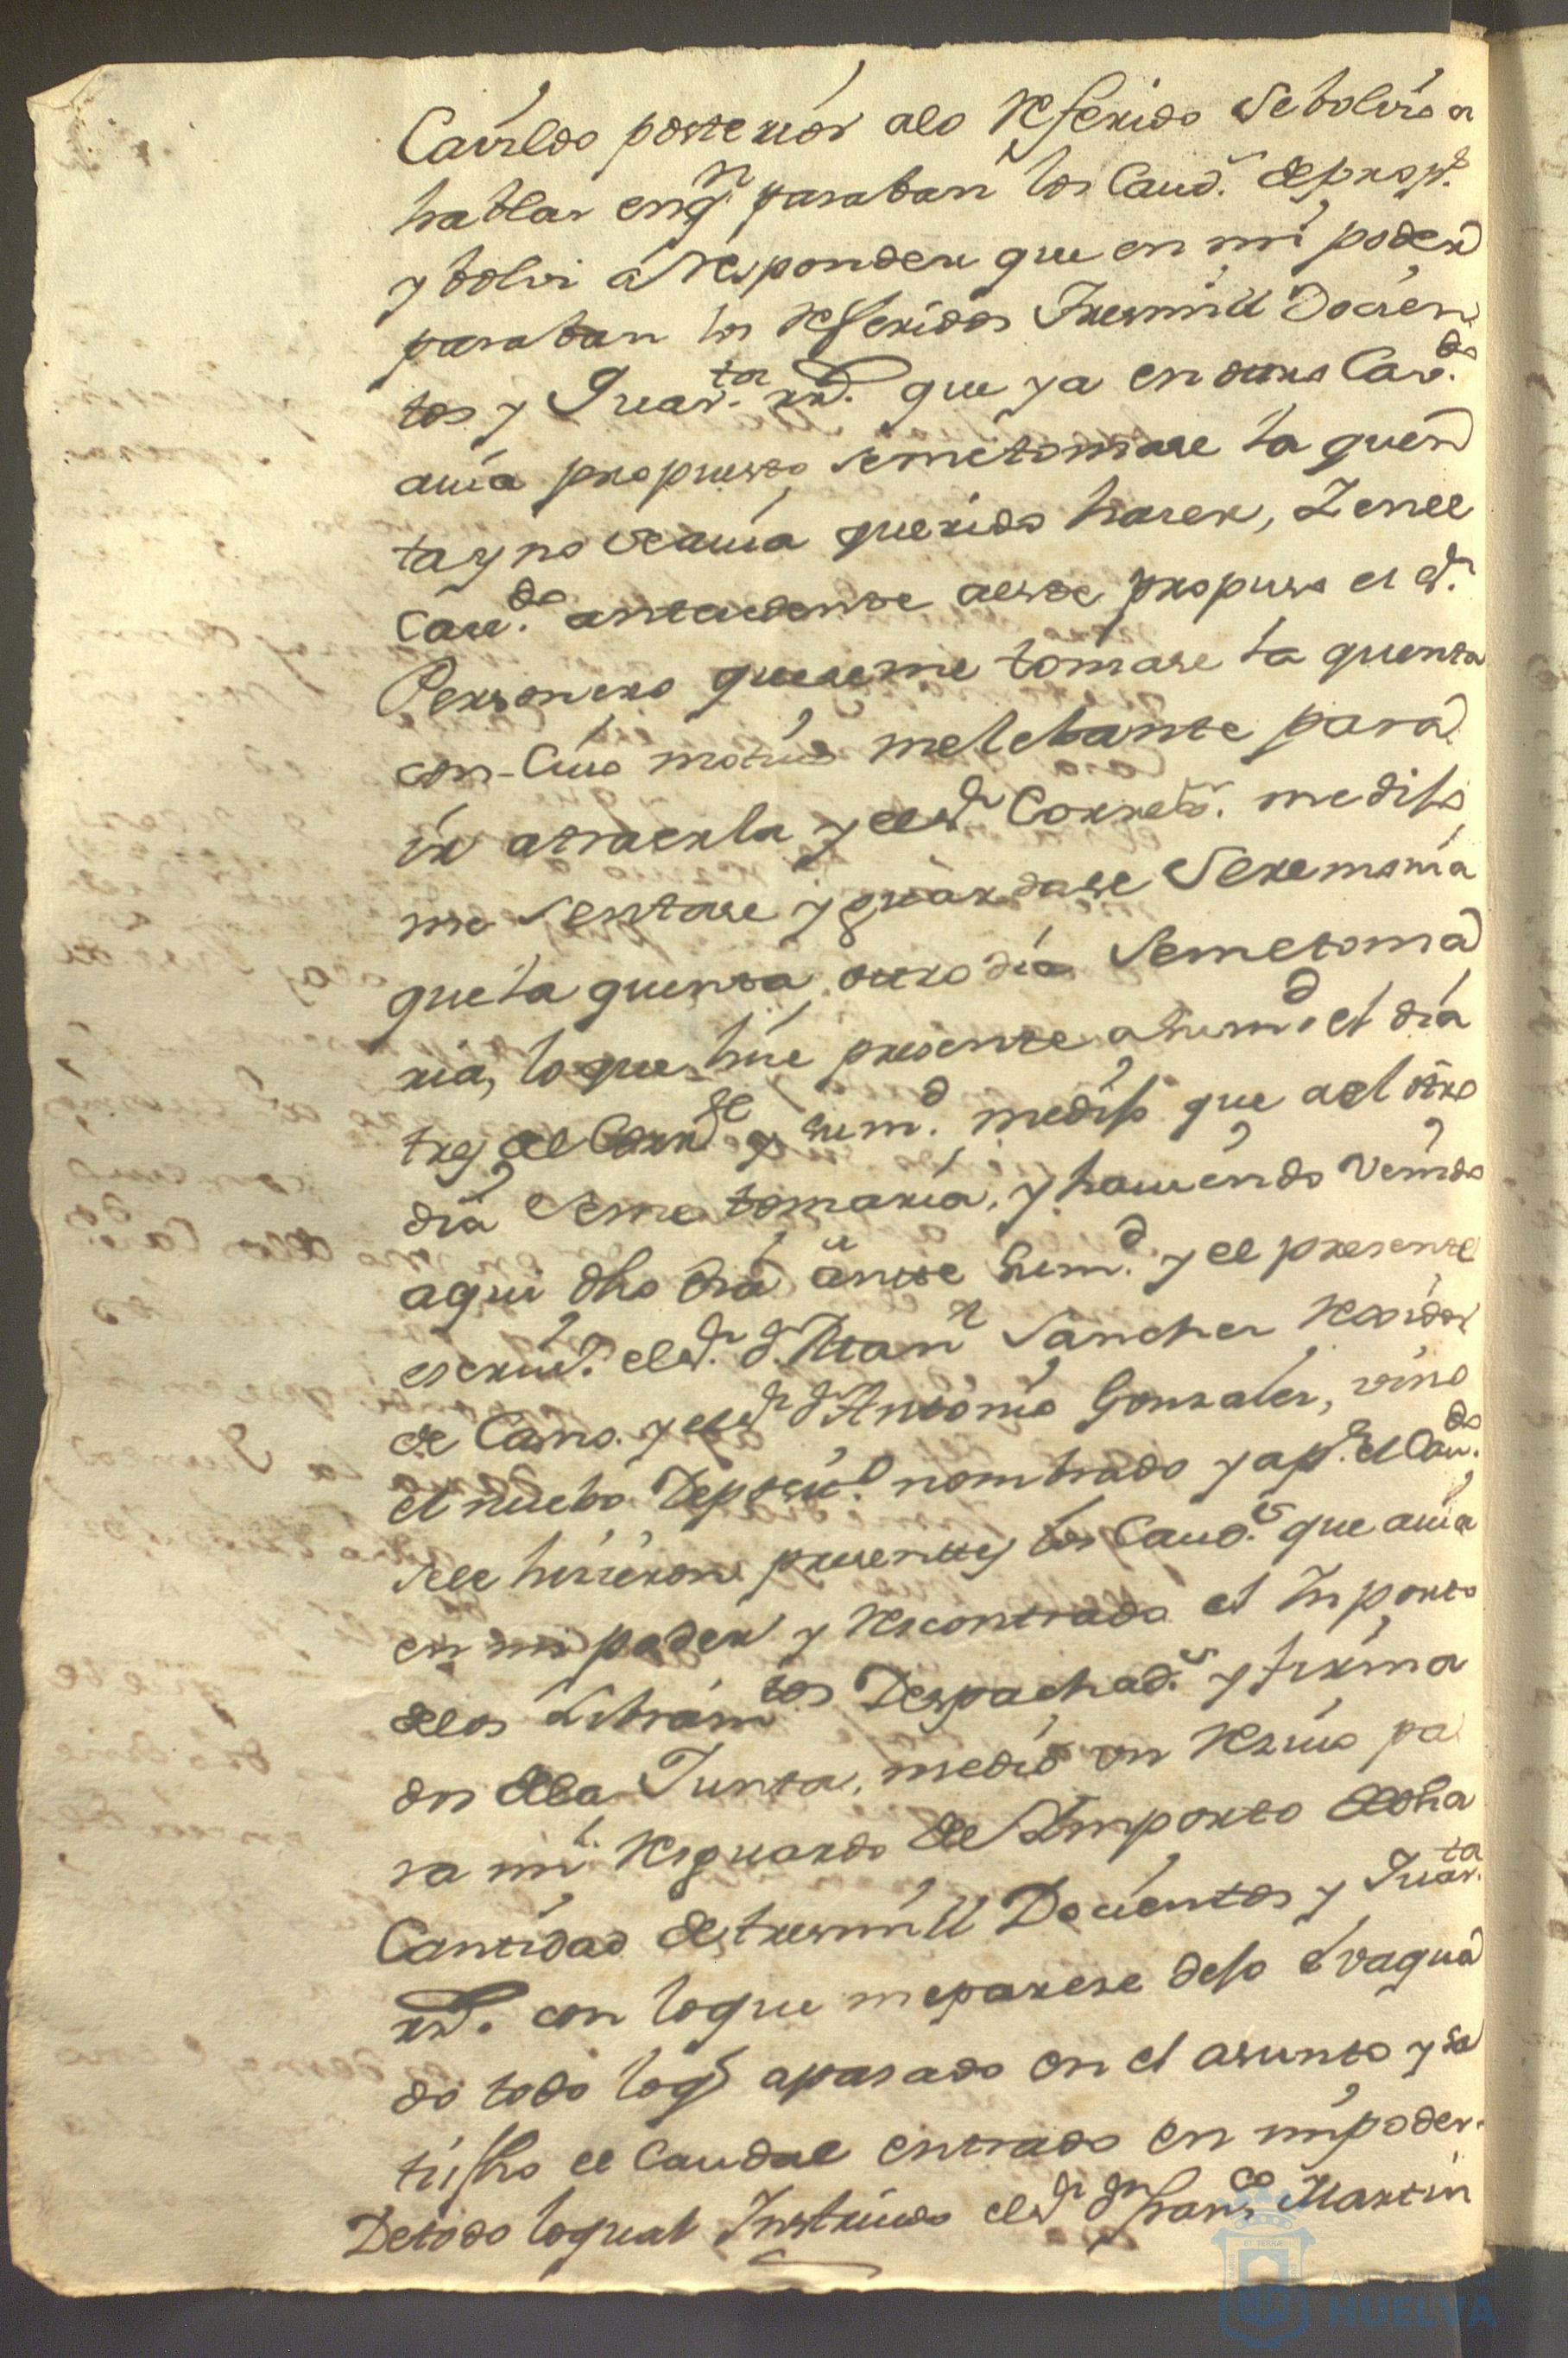 Cavildo posterior alo referido se bolvio a
hablar en qn paraban los Caud.s de prop.s
y bolvi a responder que en mi poder
paraban los referidos tresmill Docien
tos y Quar.ta rs. que ya en otro Cav.do
avia propuesto se me tomase la quen
ta y no se avia querido haser, Y en el
Cav.do antecedente a este propuso el S.r
Personero que se me tomase la quenta
con cuio motivo me lebante para
ir a traerla y el S.r Correxr. me dijo
me sentase y guardase Seremonia
que la quenta otro dia se me toma
ria, lo que hise presente a su md. el dia
tres del Corr.te y su m.d me dijo que a el otro
dia se me tomaria, y haviendo venido
aqui dho dia ante su m.d y el presente
escriv.o el S.r d.n Man.l Sanches rexidor
de Cano. y el S.r d.n Antonio Gonzales, vino
el nuebo Depocit.o nombrado y a p.r el Cav.do
se le hisieron presentes los Caud.s que avia
en mi poder y recontrado el Inporto
de los Libram.tos Despachad.s y firma
dos de la Junta, me dio un resivo pa
ra mi resguardo del Importo de dha
Cantidad de tresmill Docientos y Quar.ta
rs. con lo que me parese dejo evaqua
do todo lo q apasado en el asunto y sa
tisfho el Caudal entrado en mi poder.
De todo lo qual Instruido el S.r d.n Fran.co Martin
HUELVA